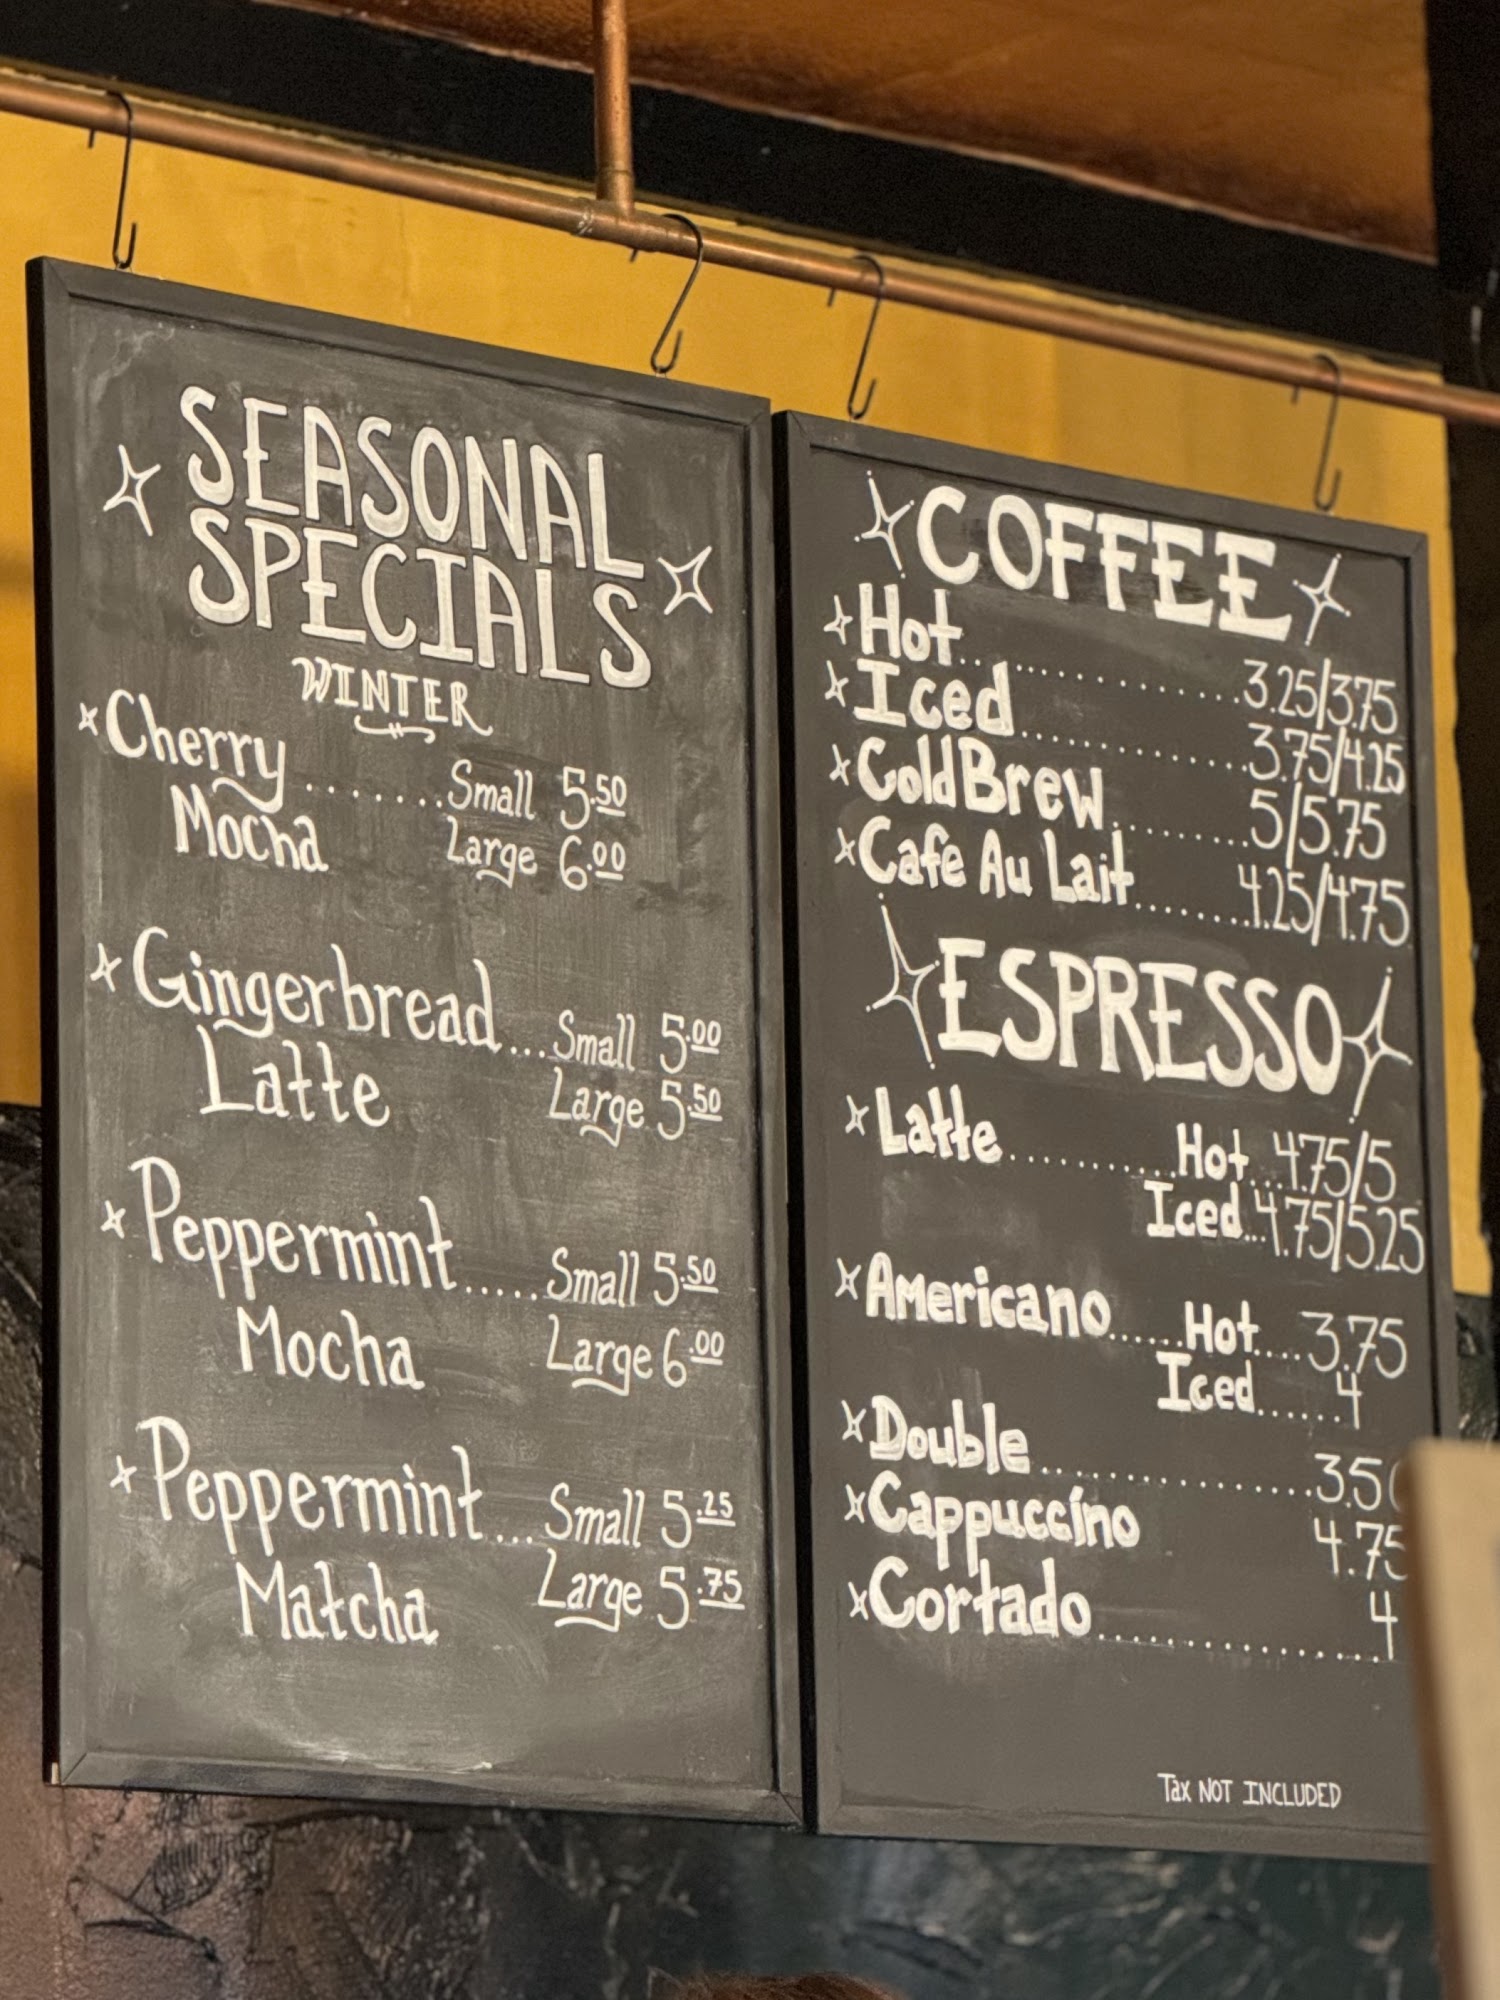 SEASONAL
SPECIALS
WINTER
Cherry Mocha ........ Small 5.50
Large 6.00
Gingerbread Latte ... Small 5.00
Large 5.50
Peppermint Mocha ..... Small 5.50
Large 6.00
Peppermint Matcha ... Small 5.25
Large 5.75
COFFEE
Hot ............... 3.25/3.75
Iced ............... 3.75/4.25
Cold Brew ......... 5/5.75
Cafe Au Lait ........ 4.25/4.75
ESPRESSO
Latte ........... Hot ... 4.75/5
Iced ... 4.75/5.25
Americano ...... Hot .... 3.75
Iced ...... 4
Double ............... 3.50
Cappuccino 4.75
Cortado ............... 4
Tax NOT INCLUDED